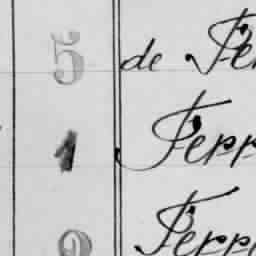 5 de Fe
1 Ferr
2 Ferr